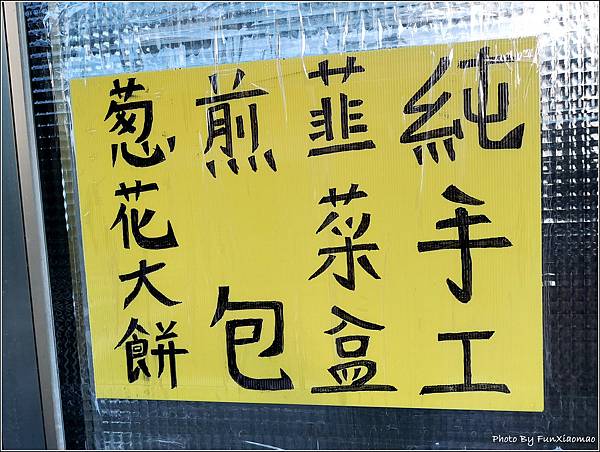 純手工
韮菜盒
煎包
葱花大餅
Photo By FunXiaomao